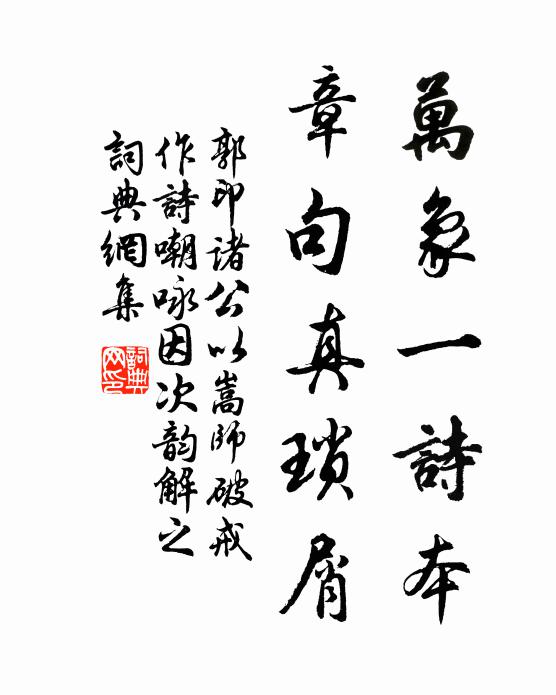 萬象一詩本
章句真瑣屑
郭印諸公以嵩師破戒
作詩嘲咏因次韵解之
詞典網集
詞典
网印